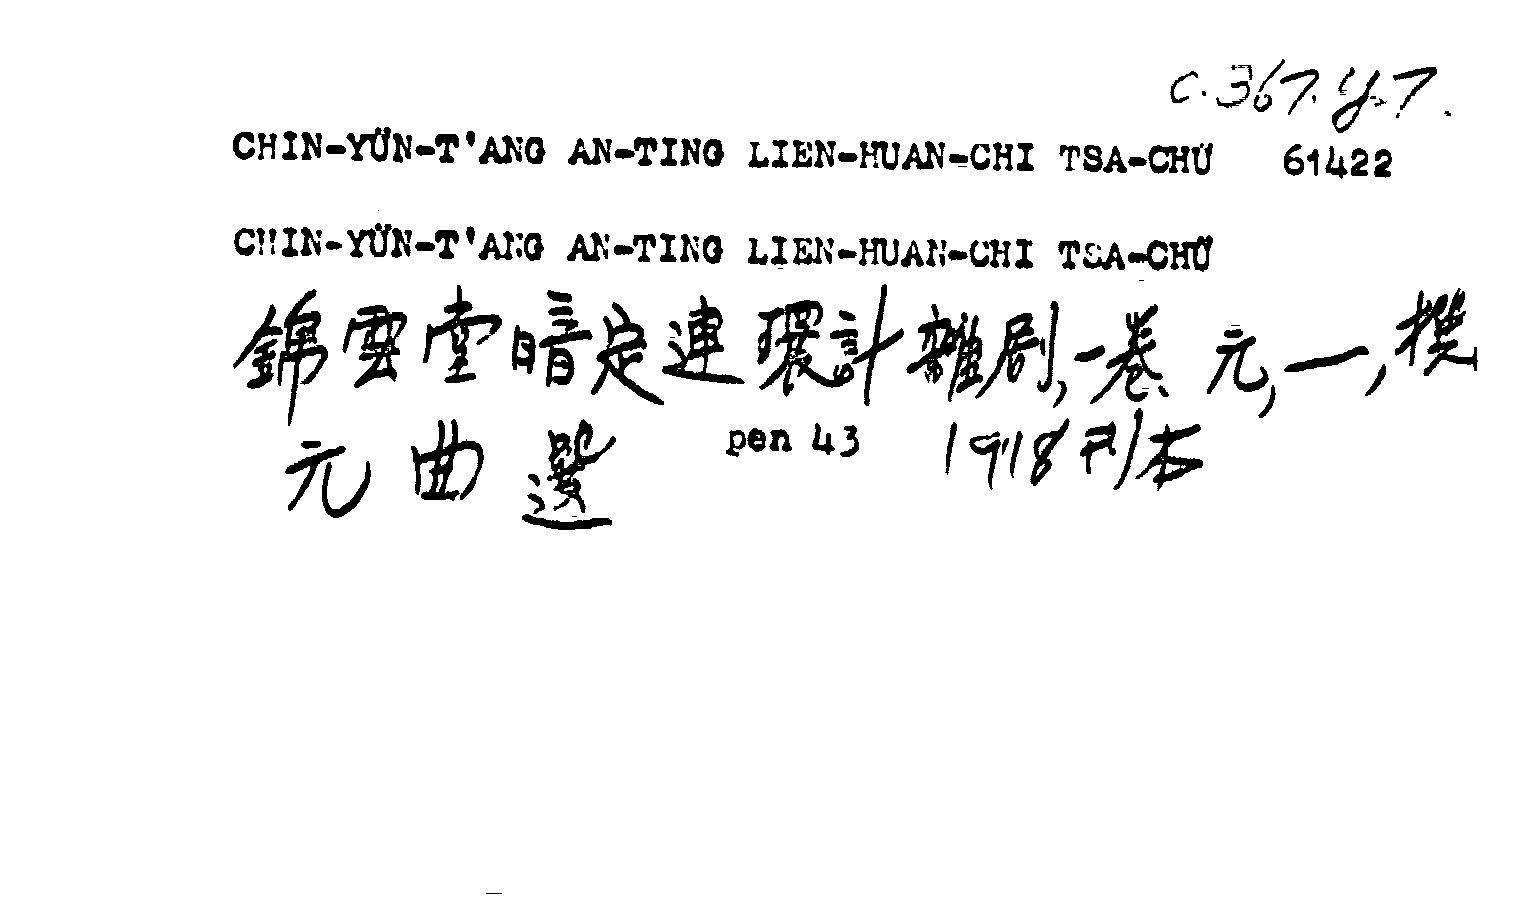 C.367.y.7.
CHIN-YÜN-T'ANG AN-TING LIEN-HUAN-CHI TSA-CHÜ 61422
CHIN-YÜN-T'ANG AN-TING LIEN-HUAN-CHI TSA-CHÜ
錦雲堂暗定連環計雜剧,一卷 元,一,撰
元曲選 pen 43 1918刊本